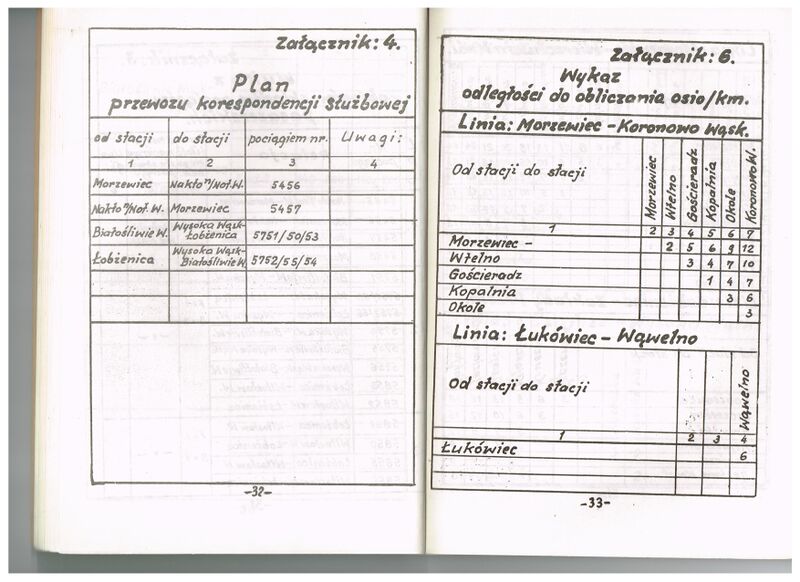 Załącznik: 4.
Plan
przewozu korespondencji służbowej
od stacji do stacji pociągiem nr. Uwagi:
1 2 3 4
Morzewiec Nakło n/Not. W. 5456
Nakło n/Not. W. Morzewiec 5457
Białośliwie W. Wysoka Wąsk- Łobżenica 5751/50/53
Łobżenica Wysoka Wąsk- Białośliwie W. 5752/55/54
-32-
Załącznik: 6.
Wykaz
odległości do obliczania osio/km.
Linia: Morzewiec - Koronowo Wąsk.
Od stacji do stacji Morzewiec Wtelno Gościeradz Kopalnia Okole Koronowo W.
1 2 3 4 5 6 7
Morzewiec - 2 5 6 9 12
Wtelno 3 4 7 10
Gościeradz 1 4 7
Kopalnia 3 6
Okole 3
Linia: Łukówiec - Wąwelno
Od stacji do stacji Wąwelno
1 2 3 4
Łukówiec 6
-33-